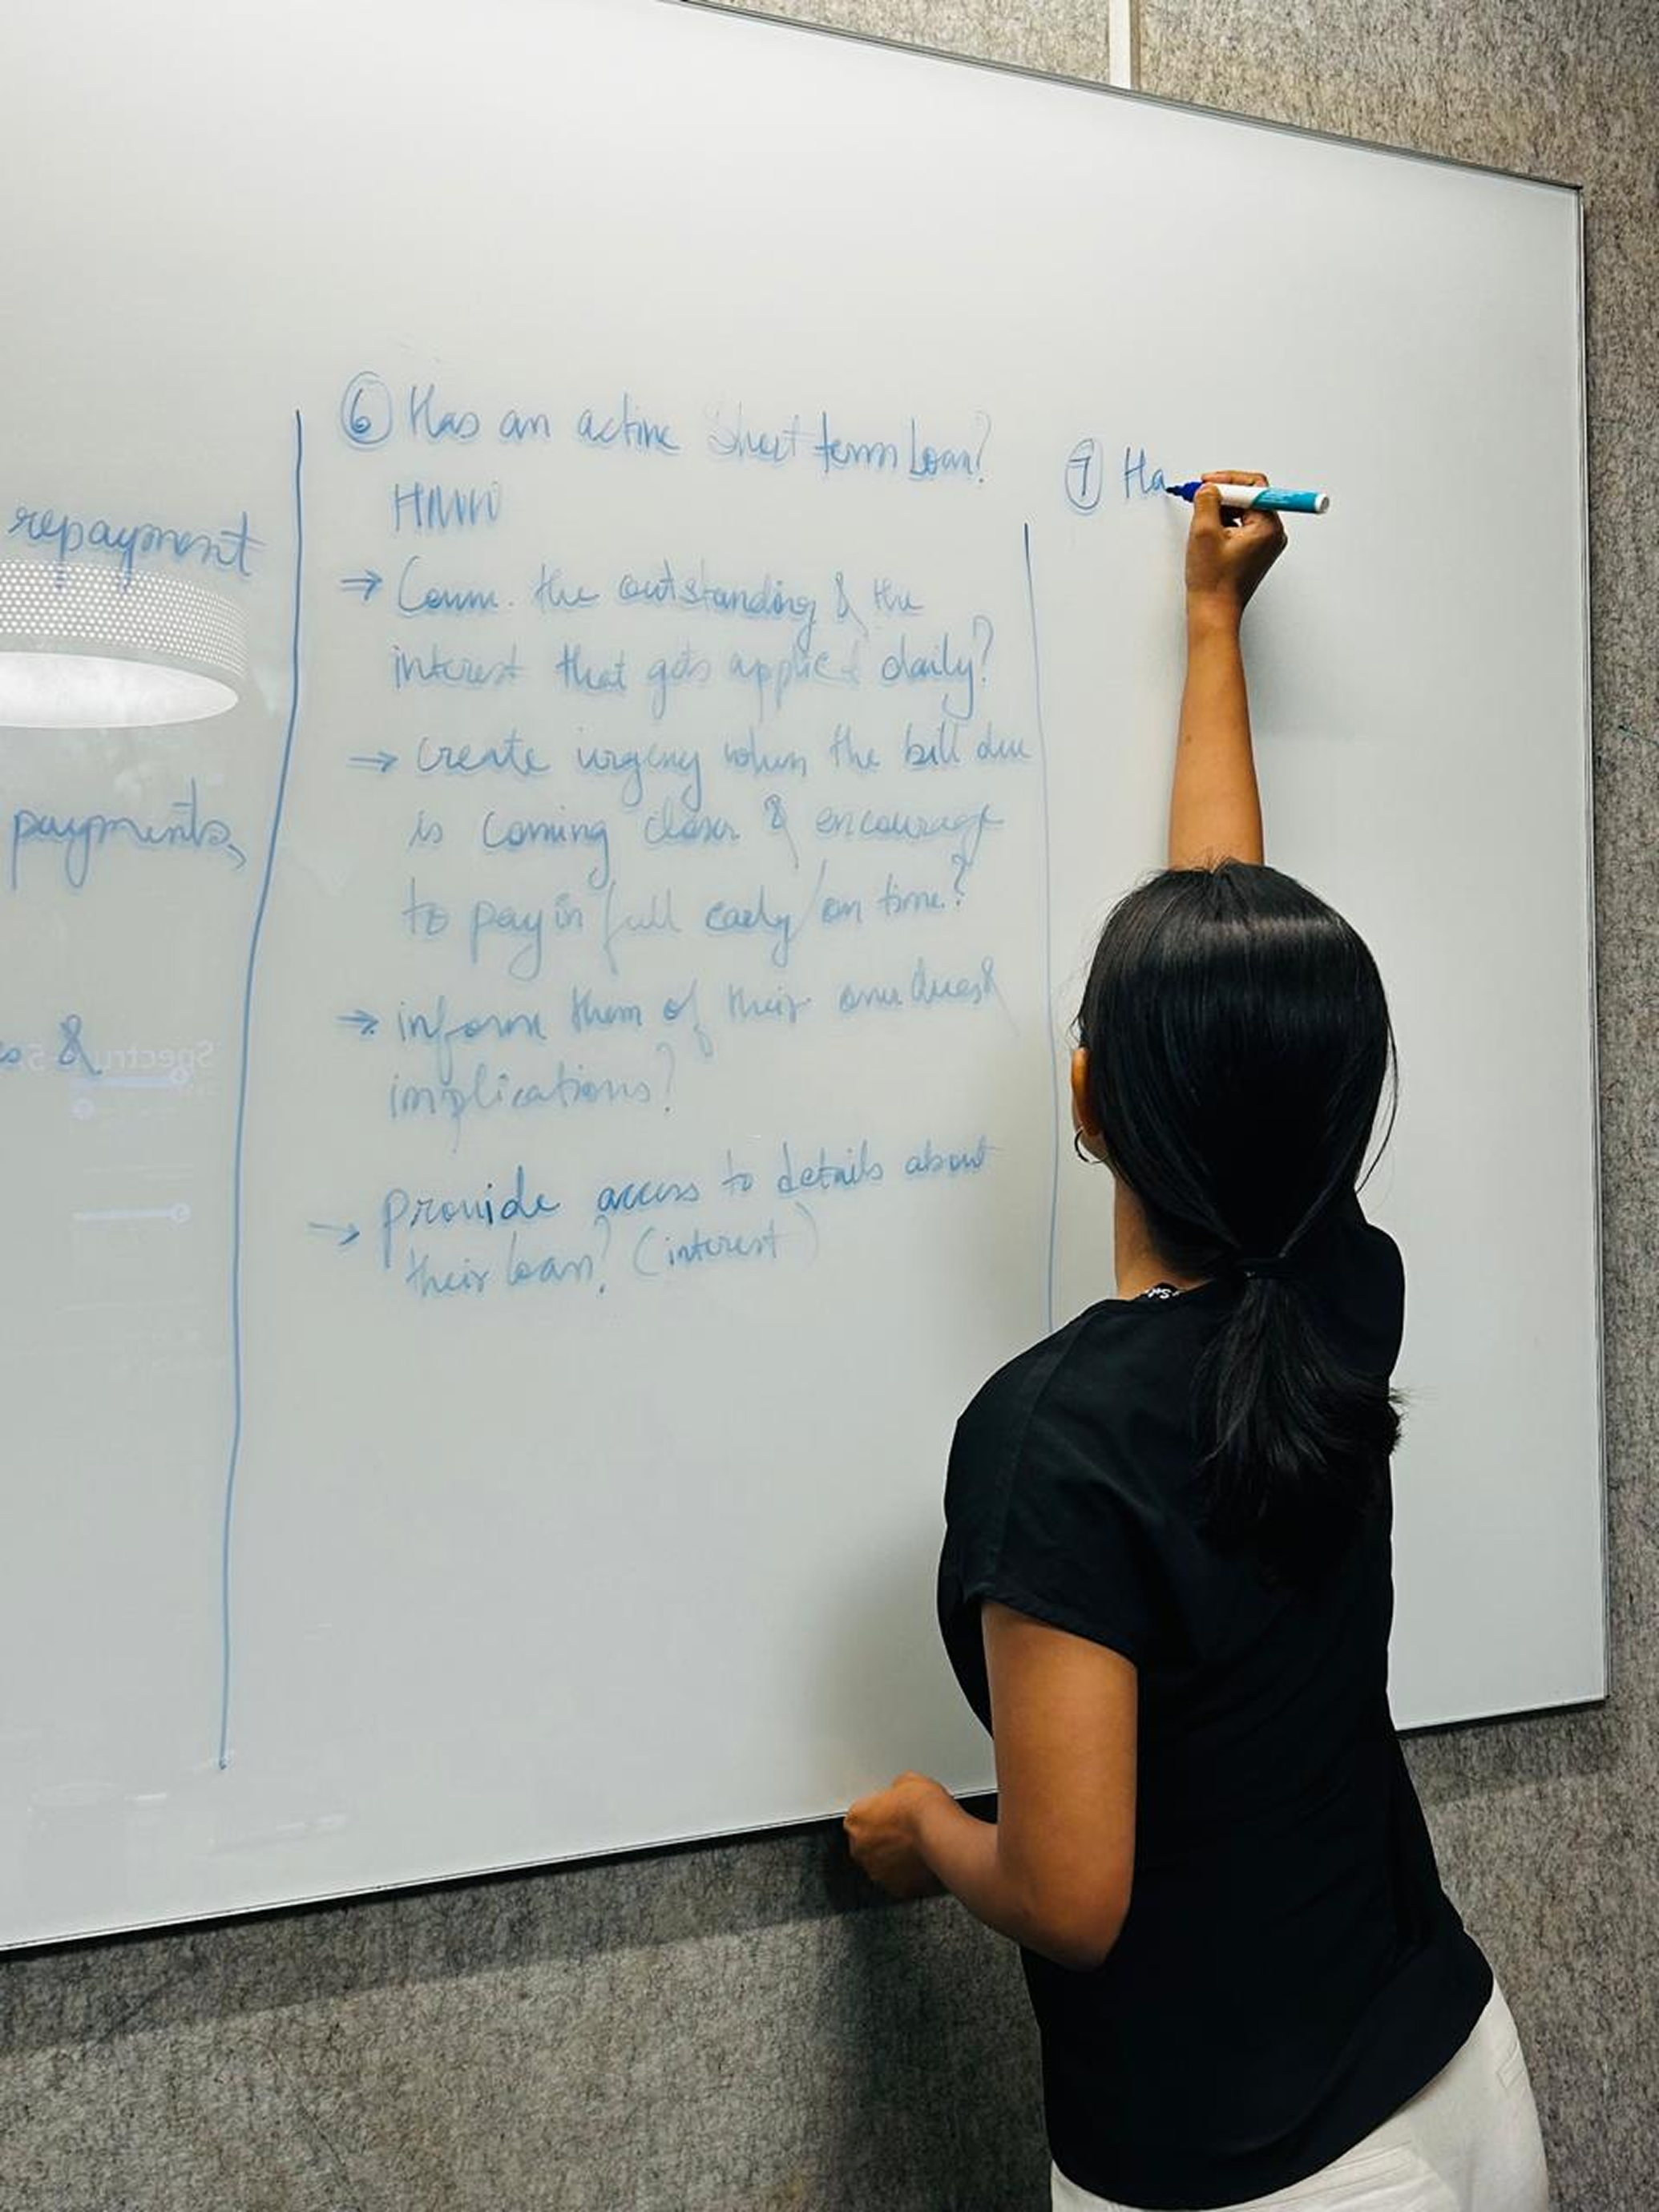 repayment
payments,
&
⑥ Has an active Short term Loan?
HMW
⇒ Comm. the outstanding & the
interest that gets applied daily?
⇒ create urgency when the bill due
is coming closer & encourage
to pay in full early/on time?
⇒ inform them of their over dues &
implications?
→ provide access to details about
their loan? (interest)
⑦ Ha